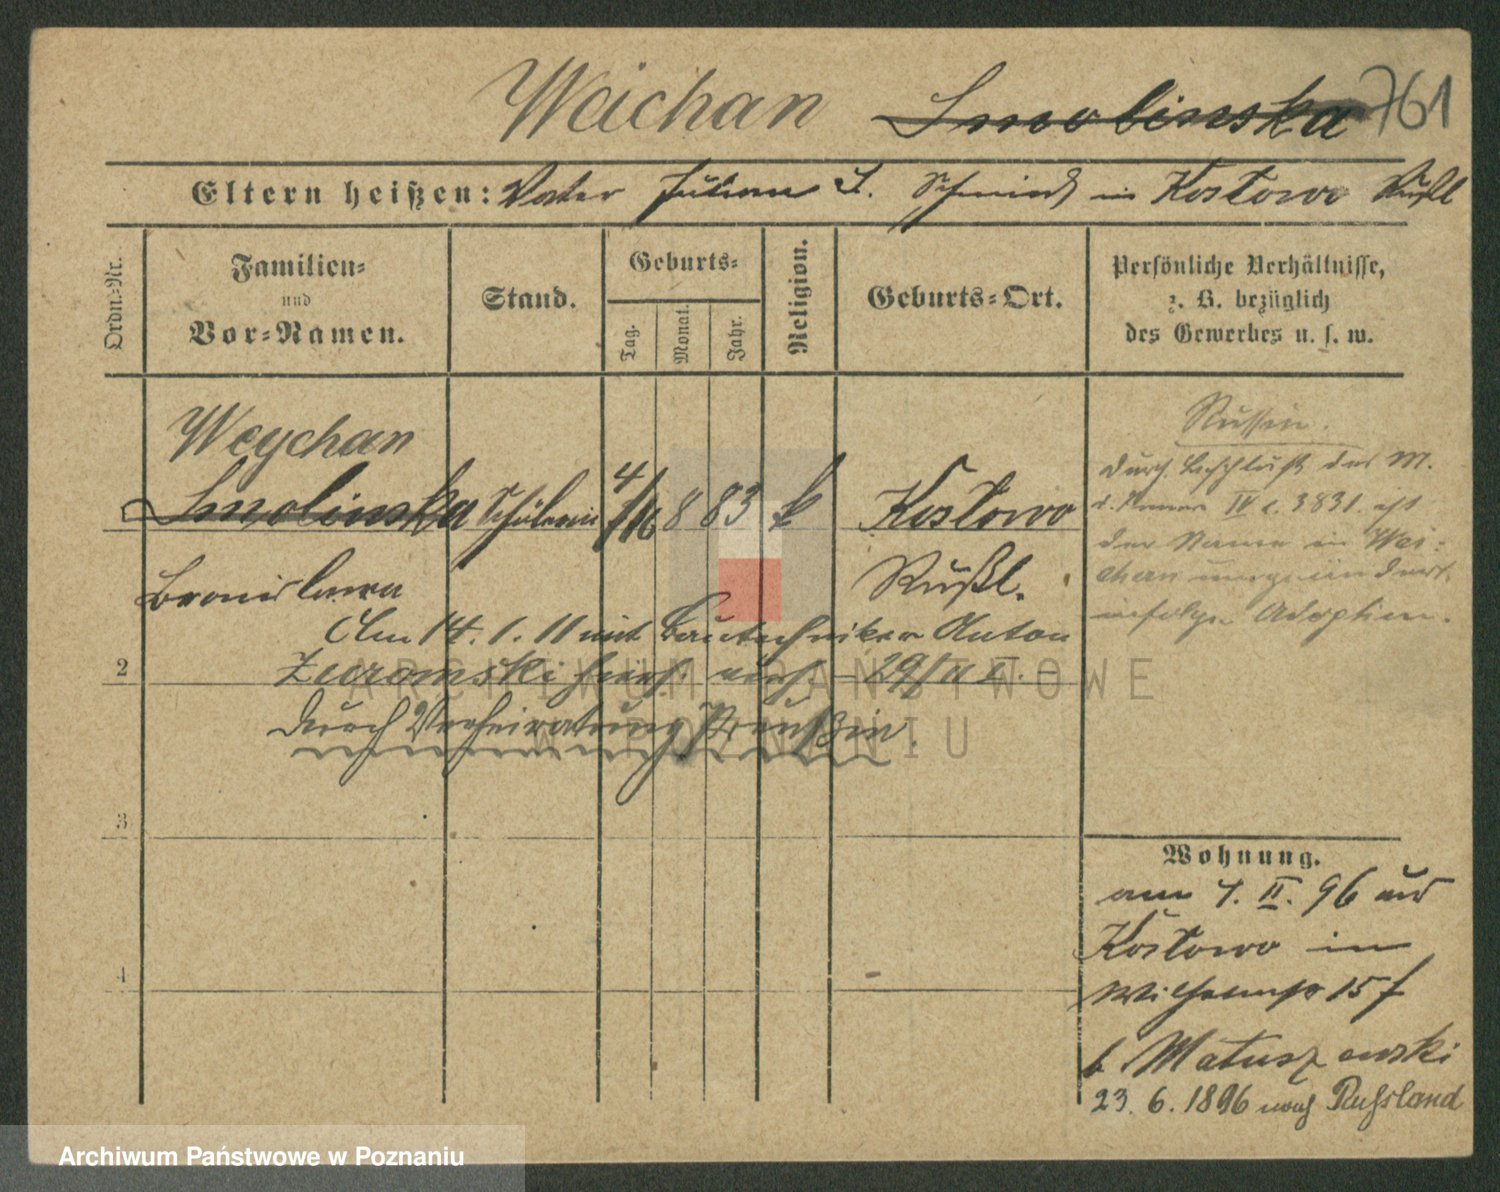 Weichan Smolinska 761
Eltern heißen: Vater Julian S. Schmied in Kostowo Rußl
Ordn.-Nr.
Familien-
und
Vor-Namen.
Stand.
Geburts-
Tag.
Monat.
Jahr.
Religion.
Geburts-Ort.
Persönliche Verhältnisse,
z. B. bezüglich
des Gewerbes u. s. w.
Weychan
Smolinska Schülerin 4/16 8 83 k Kostowo
Bronislawa Rußl.
Am 14. 1. 11 mit Bautechniker Anton
2 Zuromski 29/11
durch Verheiratung Preußin.
3
4
Russin.
durch Beschluß des M.
d. Innern IV c. 3831. ist
der Name in Wei-
chan umgeändert
infolge Adoption.
Wohnung.
am 4. II. 96 aus
Kostowo in
Wilhelmstr 15 f
b Matuszewski
23. 6. 1896 nach Russland
ARCHIWUM PAŃSTWOWE
W POZNANIU
Archiwum Państwowe w Poznaniu